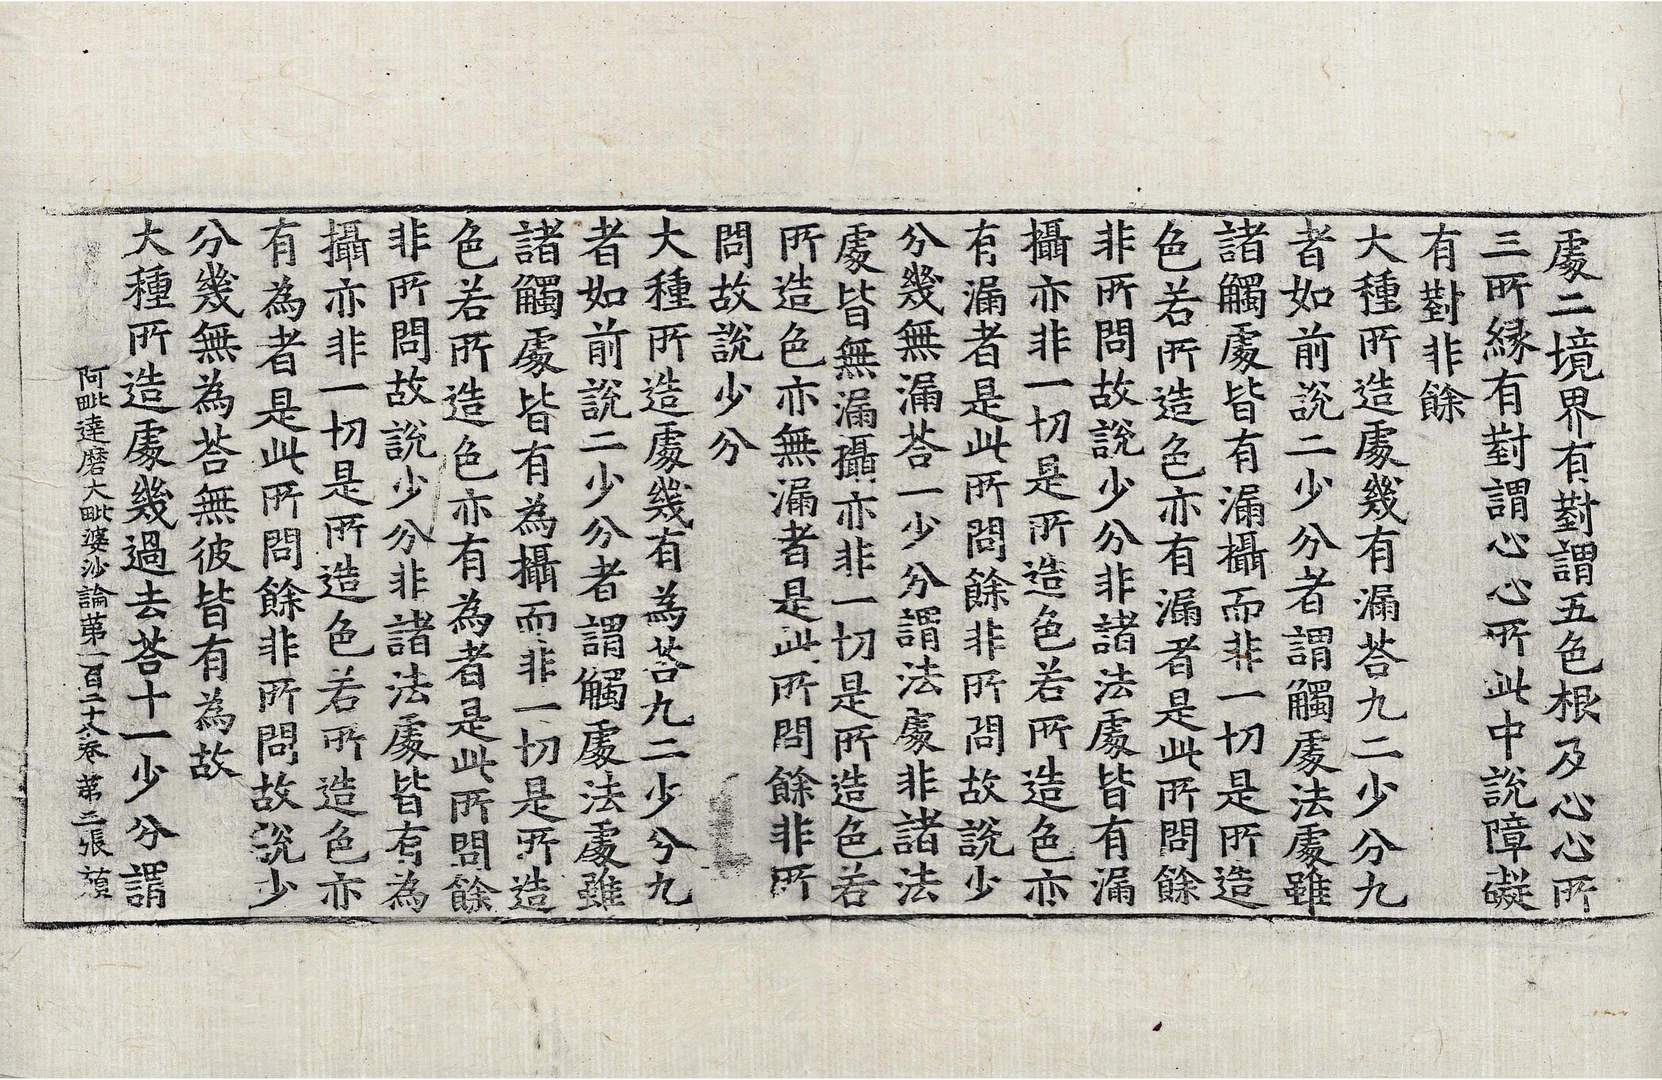 處二境界有對謂五色根及心心所
三所緣有對謂心心所此中說障礙
有對非餘
大種所造處幾有漏荅九二少分九
者如前說二少分者謂觸處法處雖
諸觸處皆有漏攝而非一切是所造
色若所造色亦有漏者是此所問餘
非所問故說少分非諸法處皆有漏
攝亦非一切是所造色若所造色亦
有漏者是此所問餘非所問故說少
分幾無漏荅一少分謂法處非諸法
處皆無漏攝亦非一切是所造色若
所造色亦無漏者是此所問餘非所
問故說少分
大種所造處幾有為荅九二少分九
者如前說二少分者謂觸處法處雖
諸觸處皆有為攝而非一切是所造
色若所造色亦有為者是此所問餘
非所問故說少分非諸法處皆有為
攝亦非一切是所造色若所造色亦
有為者是此所問餘非所問故說少
分幾無為荅無彼皆有為故
大種所造處幾過去荅十一少分謂
阿毗達磨大毗婆沙論第一百二十八卷 第二張